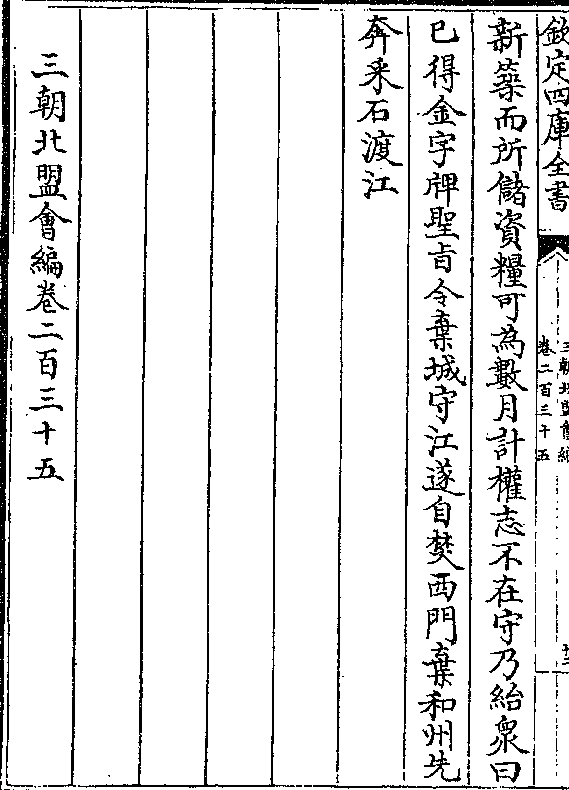 欽定四庫全書
三朝北盟會編
卷二百三十五
十三
新築而所儲資糧可為數月計權志不在守乃紿衆曰
已得金字牌聖旨令棄城守江遂自焚西門棄和州先
奔采石渡江
三朝北盟會編卷二百三十五